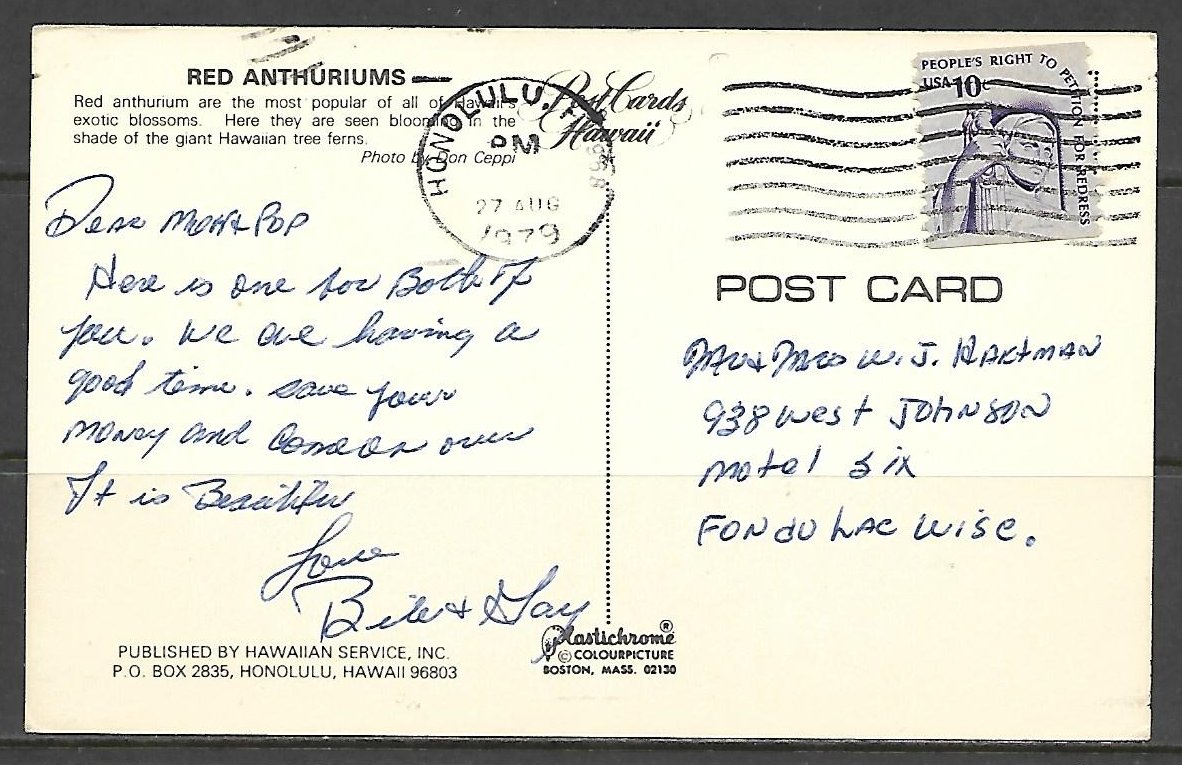 RED ANTHURIUMS
Red anthurium are the most popular of all of Hawaii's
exotic blossoms. Here they are seen blooming in the
shade of the giant Hawaiian tree ferns.
Photo by Don Ceppi
Post Cards
Hawaii
HONOLULU, HI
PM
27 AUG
1979
PEOPLE'S RIGHT TO PETITION FOR REDRESS
USA 10c
Dear Mom & Pop
Here is one for Both of
you. We are having a
good time. Save your
money and come on over
It is Beautiful
Love
Bill & Gay
POST CARD
Mr & Mrs W. J. HARTMAN
938 West JOHNSON
Motel Six
FON du LAC WISC.
PUBLISHED BY HAWAIIAN SERVICE, INC.
P.O. BOX 2835, HONOLULU, HAWAII 96803
Plastichrome®
© COLOURPICTURE
BOSTON, MASS. 02130